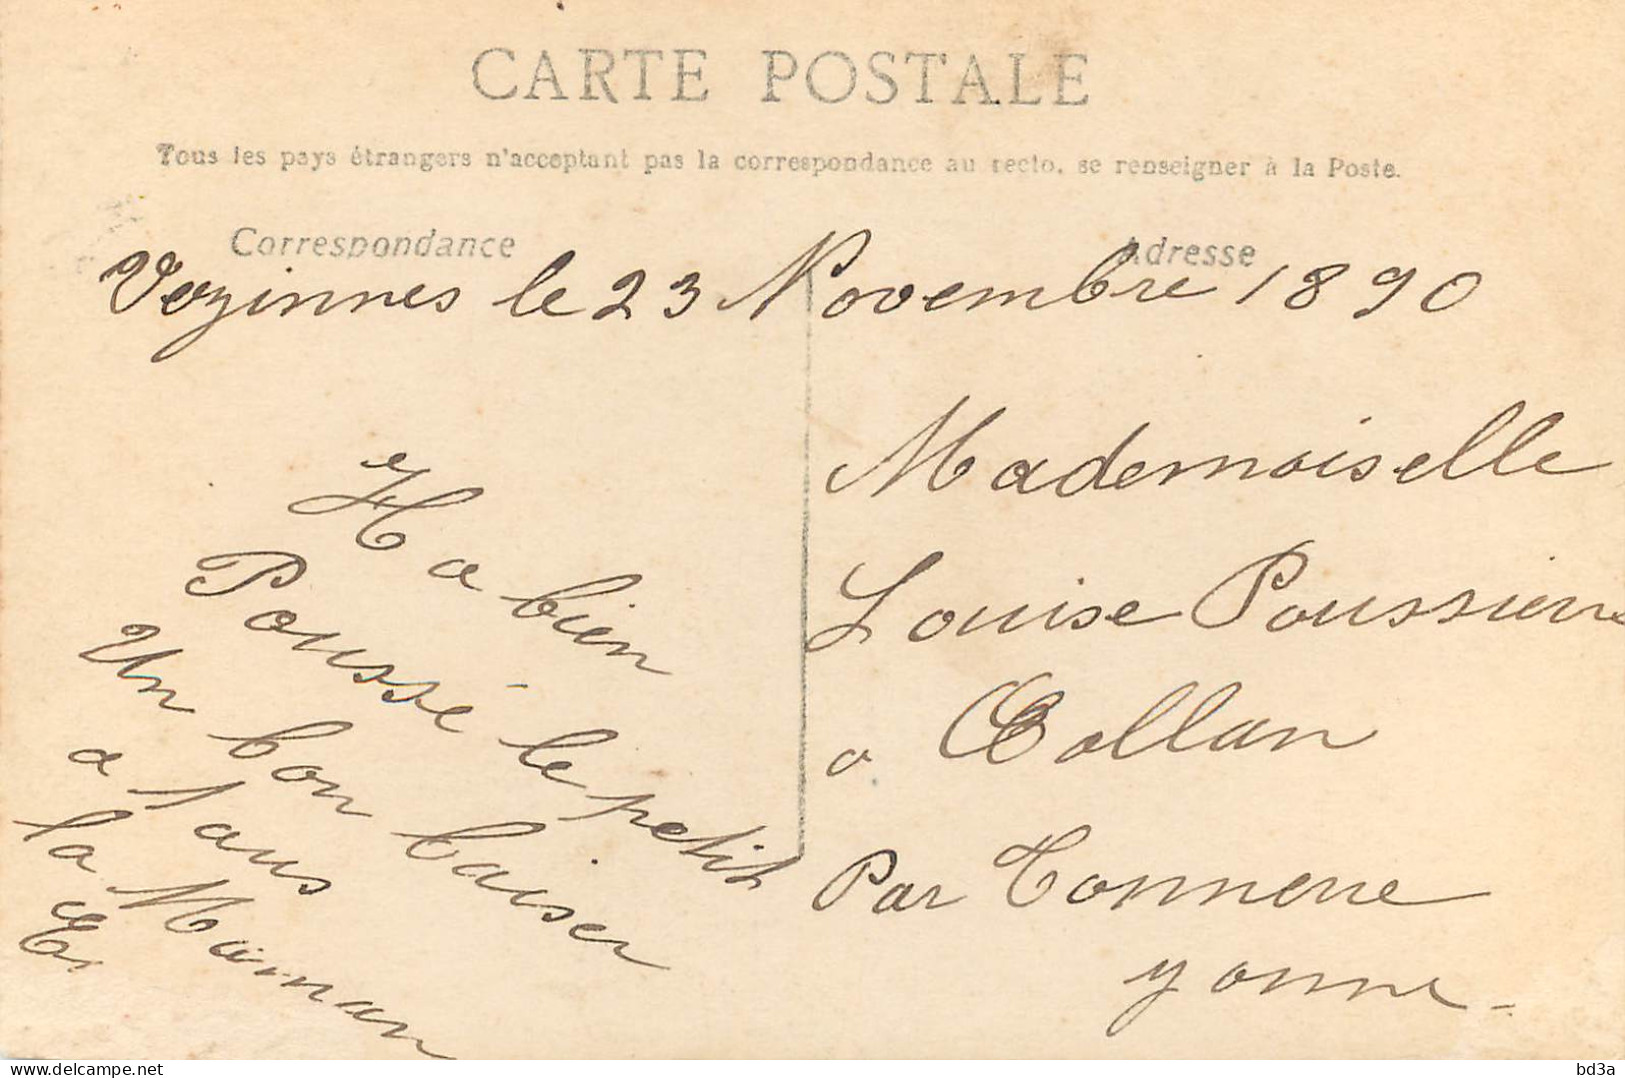 CARTE POSTALE
Tous les pays étrangers n'acceptant pas la correspondance au recto, se renseigner à la Poste.
Correspondance
Adresse
Vezinnes le 23 Novembre 1890
Ha bien
Poussé le petit
Un bon baiser
a
la Maman
Mademoiselle
Louise Poussierre
a Collan
Par Tonnerre
yonne
delcampe.net
bd3a